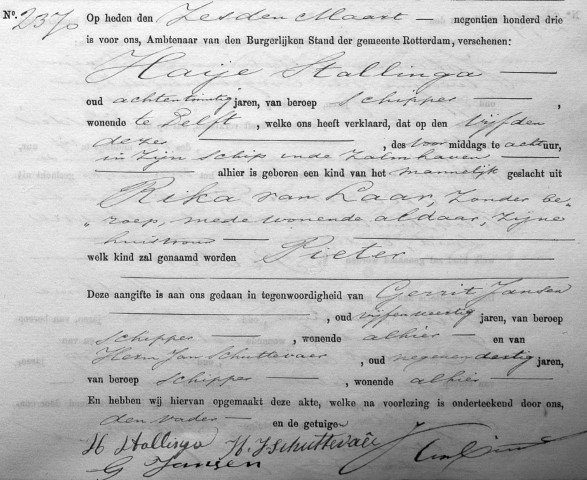 No. 2370 Op heden den Zesden Maart negentien honderd drie
is voor ons, Ambtenaar van den Burgerlijken Stand der gemeente Rotterdam, verschenen:
Haije Stallinga
oud achtentwintig jaren, van beroep schipper,
wonende te Delft, welke ons heeft verklaard, dat op den vijfden
dezer, des voormiddags te acht uur,
in zijn schip in de Zalmhaven
alhier is geboren een kind van het mannelijk geslacht uit
Rika van Laar, zonder be-
„ roep, mede wonende aldaar, zijne
huisvrouw
welk kind zal genaamd worden Pieter
Deze aangifte is aan ons gedaan in tegenwoordigheid van Gerrit Jansen
, oud vijfenveertig jaren, van beroep
schipper, wonende alhier en van
Herm Jan Schuttevaer, oud negenendertig jaren,
van beroep schipper, wonende alhier
En hebben wij hiervan opgemaakt deze akte, welke na voorlezing is onderteekend door ons,
den vader en de getuigen
H Stallinga H. J Schuttevaêr
G Jansen